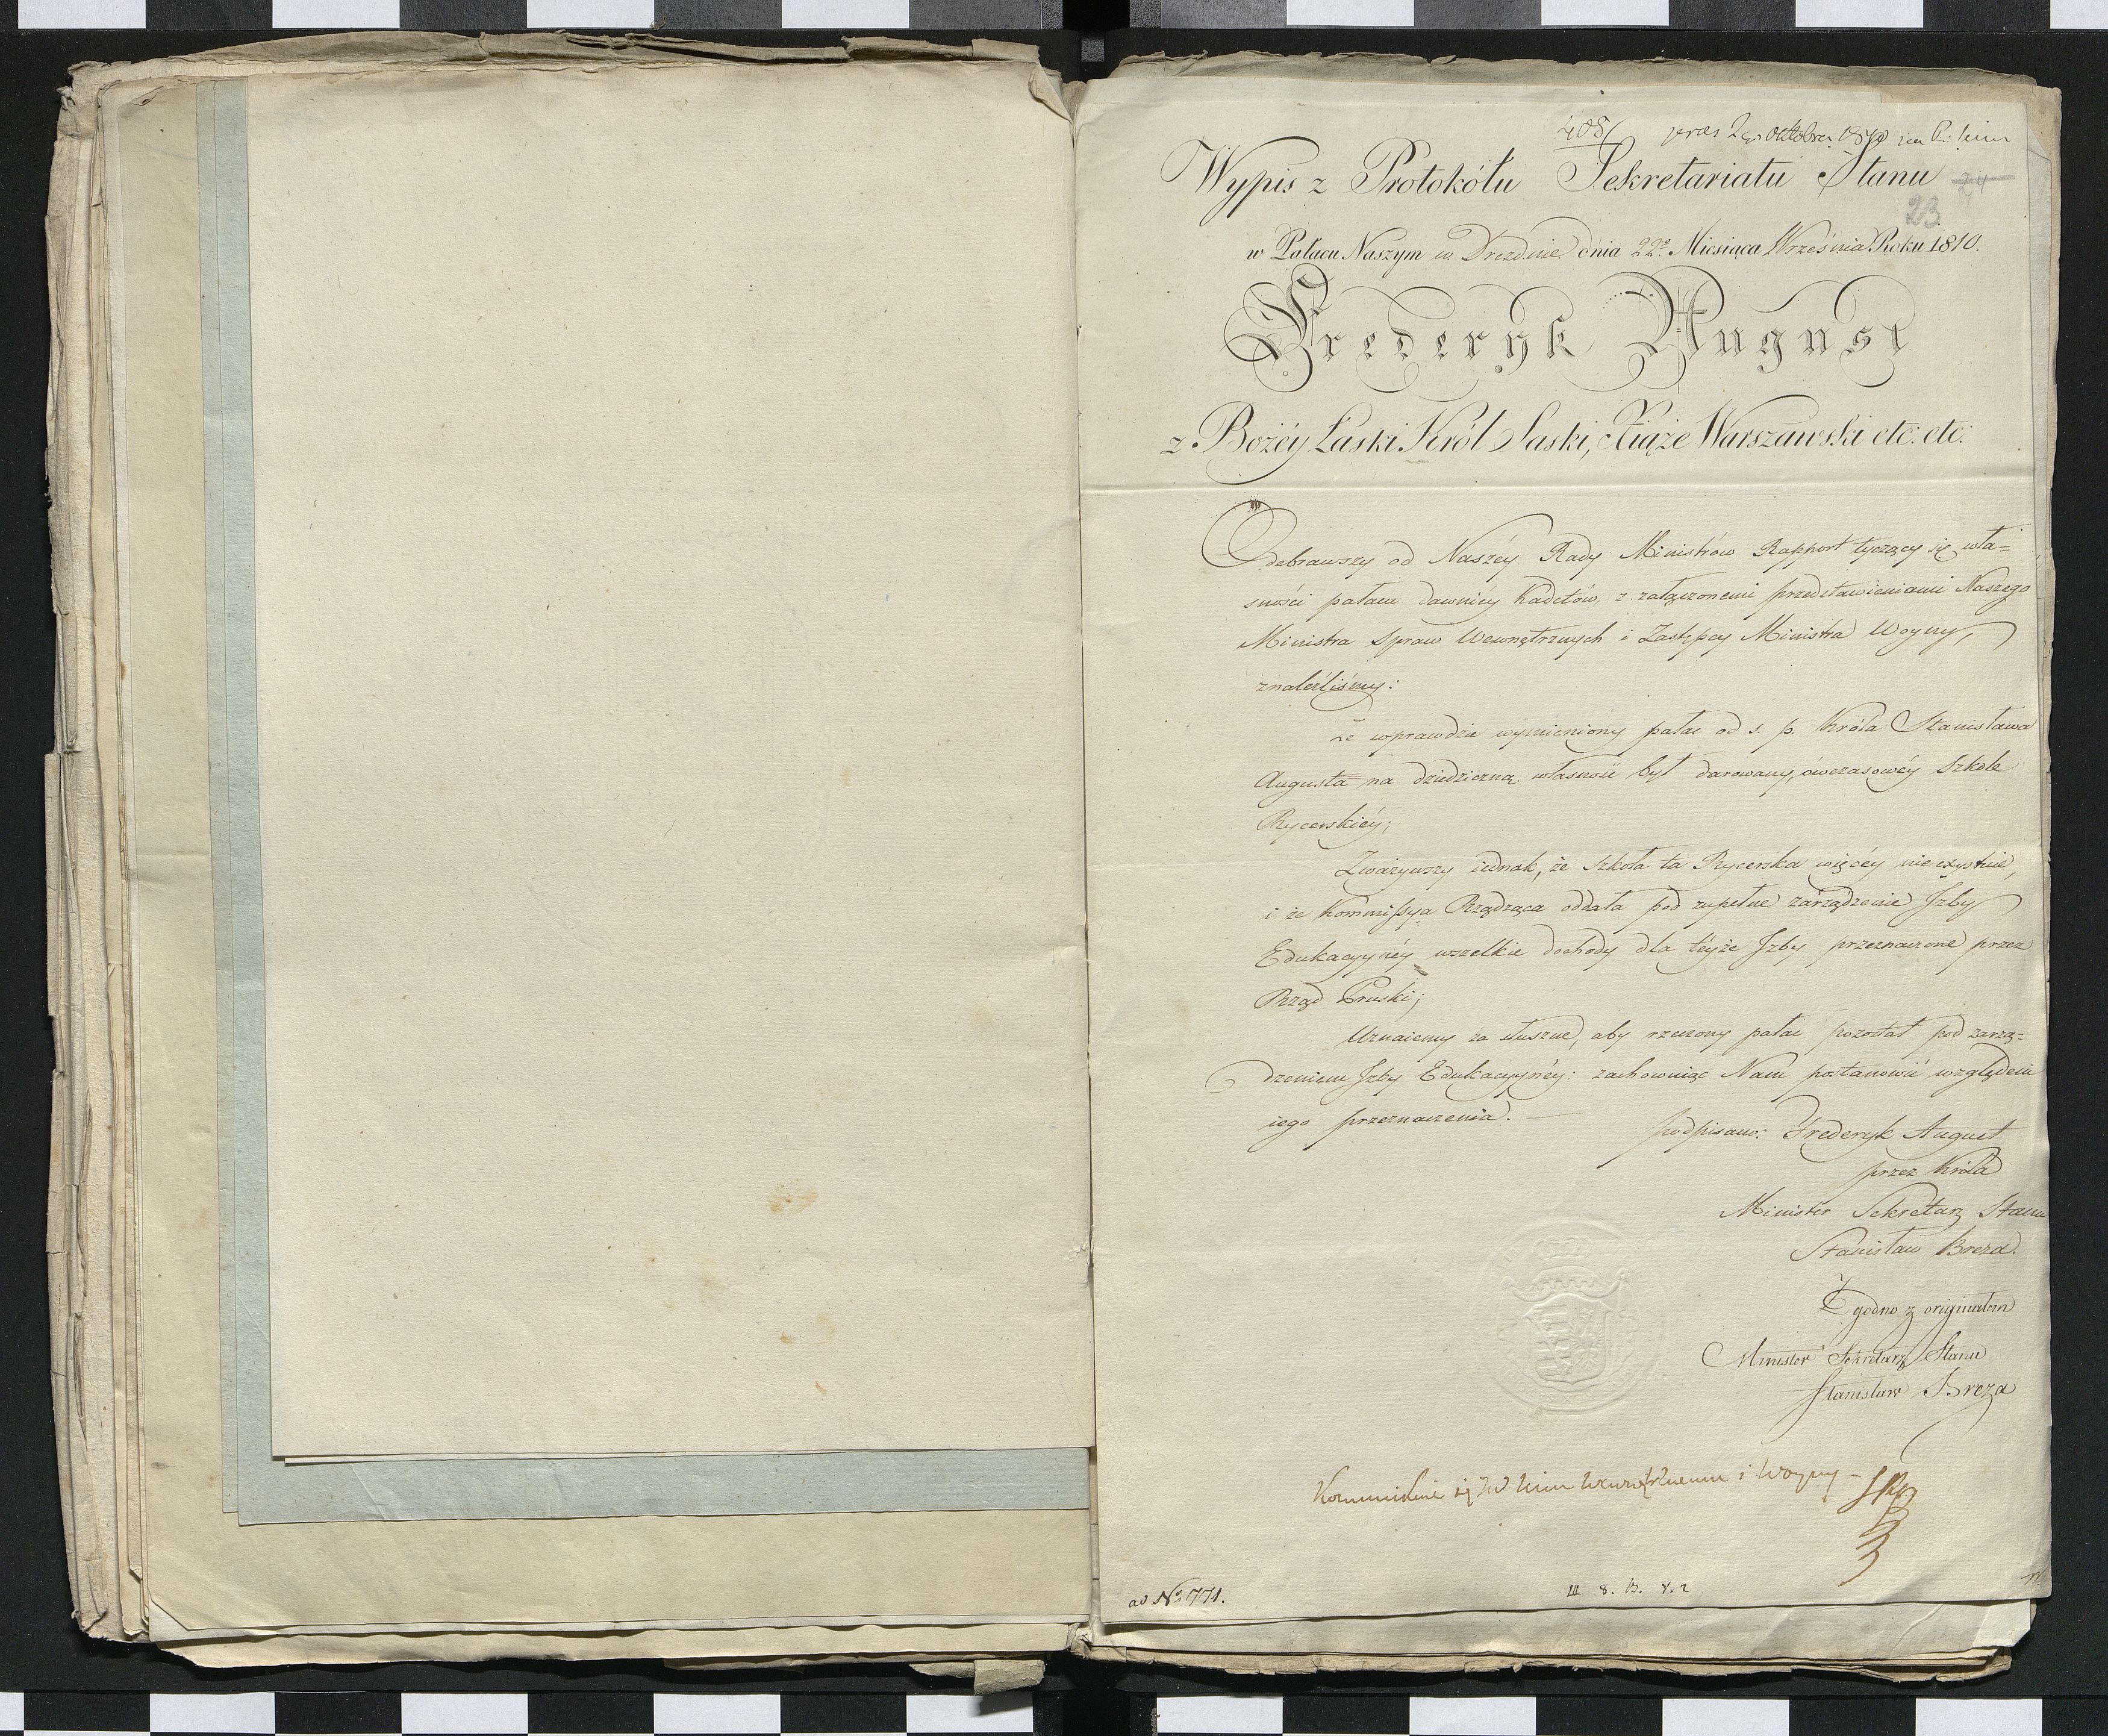 408/ praes 2go Oktobra 1810
Wypis z Protokółu Sekretariatu Stanu 24
23
w Pałacu Naszym w Dreźnie dnia 22º Miesiąca Września Roku 1810.
Frederyk August
z Bożéy Łaski Król Saski, Xiąże Warszawski etc: etc:
Odebrawszy od Naszéy Rady Ministrów Rapport tyczący się wła=
sności pałacu dawniey Kadetów, z załączonemi przedstawieniami Naszego
Ministra Spraw Wewnętrznych i Zastępcy Ministra Woyny,
znaleźliśmy:
że wprawdzie wymieniony pałac od s. p. Króla Stanisława
Augusta na dziedziczną własność był darowany, ówczasowéy Szkole
Rycerskiéy;
Zważywszy iednak, że Szkoła ta Rycerska więcéy nie exystuie,
i że Kommissya Rządząca oddała pod zupełne zarządzenie Izby
Edukacyynéy wszelkie dochody dla téyże Izby przeznaczone przez
Rząd Pruski;
Uznaiemy za słuszne, aby rzeczony pałac pozostał pod zarzą=
dzeniem Izby Edukacyynéy: zachowuiąc Nam postanowić względem
iego przeznaczenia. —
podpisano: Frederyk August
przez Króla
Minister Sekretarz Stanu
Stanisław Breza.
Zgodno z originałem
Minister Sekretarz Stanu
Stanisław Breza
Kommunikuie się Min Wewnętrznemu i Woyny –
ad Nº 771.
III 8. B. V. 2